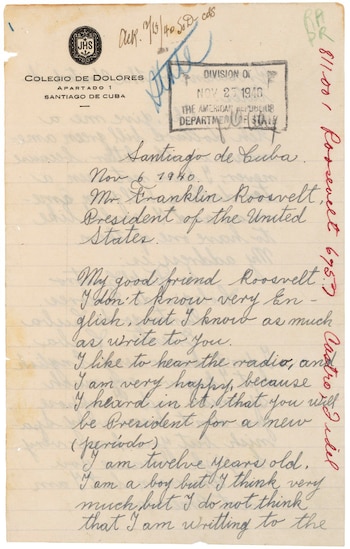 JHS
COLEGIO DE DOLORES
APARTADO 1
SANTIAGO DE CUBA
State
DIVISION OF
NOV 27 1940
THE AMERICAN REPUBLICS
DEPARTMENT OF STATE
811.001 Roosevelt 6957 Castro Fidel
Santiago de Cuba.
Nov 6 1940.
Mr. Franklin Roosvelt,
President of the United
States.
My good friend Roosvelt
I don't know very En-
glish, but I know as much
as write to you.
I like to hear the radio, and
I am very happy, because
I heard in it, that you will
be President for a new
(período)
I am twelve years old.
I am a boy but I think very
much but I do not think
that I am writting to the